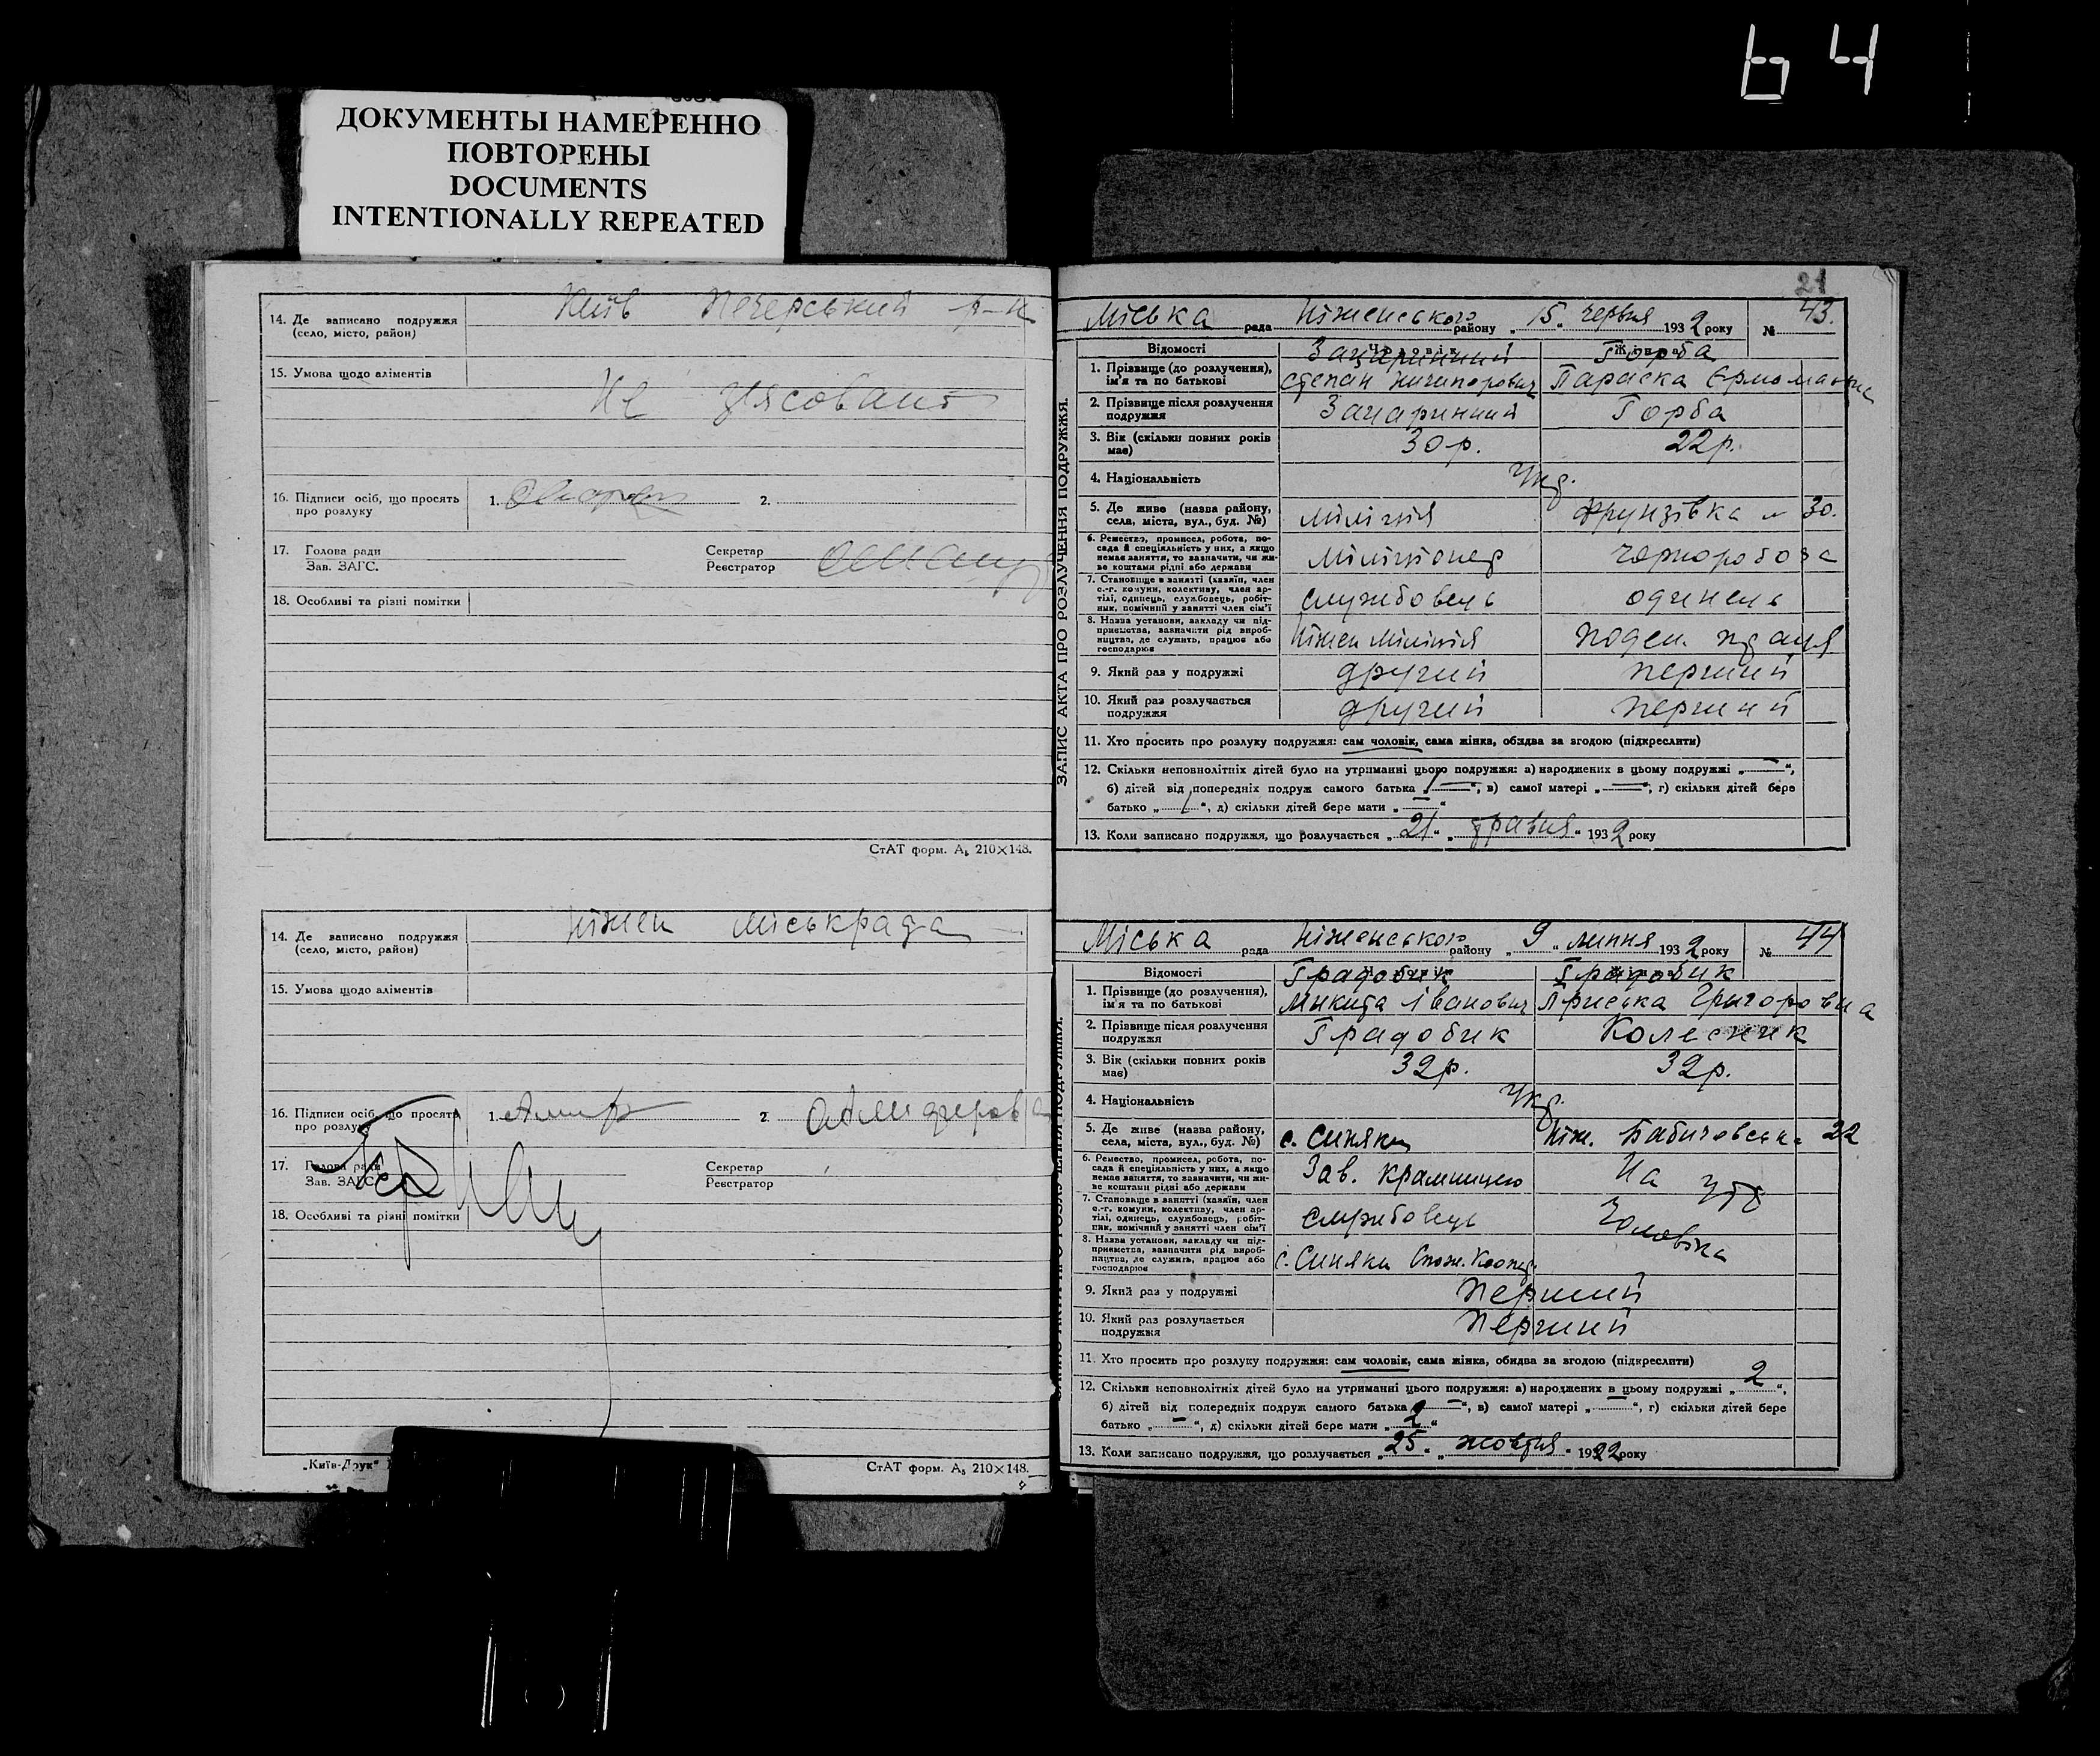 64
ДОКУМЕНТЫ НАМЕРЕННО
ПОВТОРЕНЫ
DOCUMENTS
INTENTIONALLY REPEATED
14. Де записано подружжя
(село, місто, район)
Київ Печерський р-н
15. Умова щодо аліментів
Не
16. Підписи осіб, що просять
про розлуку
1.
2.
17. Голова ради
Зав. ЗАГС.
Секретар
Реєстратор
18. Особливі та різні помітки
СтАТ форм. А5 210×148.
14. Де записано подружжя
(село, місто, район)
Ніжен Міськрада
15. Умова щодо аліментів
16. Підписи осіб, що просять
про розлуку
1.
2.
17. Голова ради
Зав. ЗАГС.
Секретар
Реєстратор
18. Особливі та різні помітки
„Київ-Друк“
СтАТ форм. А5 210×148.
21
ЗАПИС АКТА ПРО РОЗЛУЧЕННЯ ПОДРУЖЖЯ.
Міська рада Ніженського району „15„ червня 1932 року № 43.
Відомості Чоловік Жінка
1. Прізвище (до розлучення),
ім'я та по батькові
Зацаринний Горба
Степан Ничипорович Параска
2. Прізвище після розлучення
подружжя
Зацаринний Горба
3. Вік (скільки повних років
має)
30 р. 22 р.
4. Національність
Укр.
5. Де живе (назва району,
села, міста, вул., буд. №)
Міліція Фрунзівка 30.
6. Ремество, промисел, робота, по-
сада й спеціяльність у них, а якщо
немає заняття, то зазначити, чи жи-
ве коштами рідні або держави
Міліціонер Чорнороб
7. Становище в занятті (хазяїн, член
с.-г. комуни, колективу, член ар-
тілі, одинець, службовець, робіт-
ник, помічний у занятті член сім'ї
службовець одинець
8. Назва установи, закладу чи під-
приємства, зазначити рід вироб-
ництва, де служить, працює або
господарює
Ніжен Міліція поден. праця
9. Який раз у подружжі
другий перший
10. Який раз розлучається
подружжя
другий перший
11. Хто просить про розлуку подружжя: сам чоловік, сама жінка, обидва за згодою (підкреслити)
12. Скільки неповнолітніх дітей було на утриманні цього подружжя: а) народжених в цьому подружжі „—“,
б) дітей від попередніх подруж самого батька „—“, в) самої матері „—“, г) скільки дітей бере
батько „ “, д) скільки дітей бере мати „—“
13. Коли записано подружжя, що розлучається „21“ „травня“ 1932 року
Міська рада Ніженського району „9„ липня 1932 року № 44
Відомості
1. Прізвище (до розлучення),
ім'я та по батькові
Градобик Градобик
Микита Іванович Пріська Григоровна
2. Прізвище після розлучення
подружжя
Градобик Колесник
3. Вік (скільки повних років
має)
32 р. 32 р.
4. Національність
Укр.
5. Де живе (назва району,
села, міста, вул., буд. №)
с. Синяки Ніж. Бабичовська 22
6. Ремество, промисел, робота, по-
сада й спеціяльність у них, а якщо
немає заняття, то зазначити, чи жи-
ве коштами рідні або держави
Зав. крамницею На утр
7. Становище в занятті (хазяїн, член
с.-г. комуни, колективу, член ар-
тілі, одинець, службовець, робіт-
ник, помічний у занятті член сім'ї
службовець Чоловіка
8. Назва установи, закладу чи під-
приємства, зазначити рід вироб-
ництва, де служить, працює або
господарює
с. Синяки Спож. Кооп.
9. Який раз у подружжі
перший
10. Який раз розлучається
подружжя
перший
11. Хто просить про розлуку подружжя: сам чоловік, сама жінка, обидва за згодою (підкреслити)
12. Скільки неповнолітніх дітей було на утриманні цього подружжя: а) народжених в цьому подружжі „2“,
б) дітей від попередніх подруж самого батька „—“, в) самої матері „—“, г) скільки дітей бере
батько „—“, д) скільки дітей бере мати „2“
13. Коли записано подружжя, що розлучається „25„ „жовтня“ 1922 року